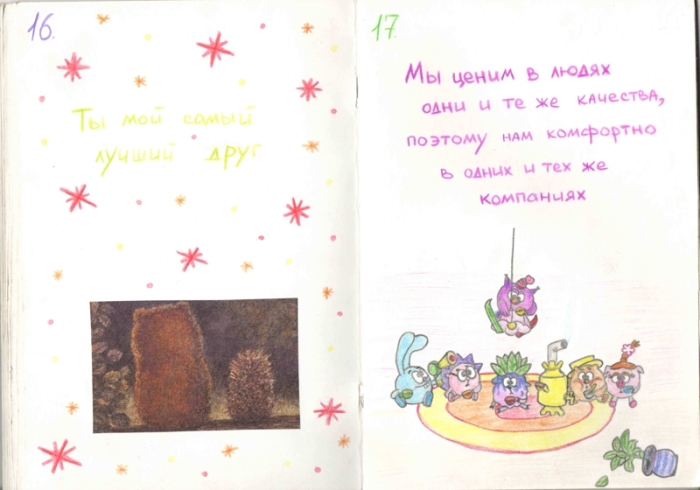 16.
Ты мой самый
лучший друг
17.
Мы ценим в людях
одни и те же качества,
поэтому нам комфортно
в одних и тех же
компаниях